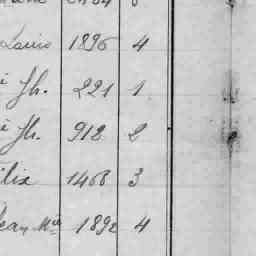 Louis 1896 4
Jh. 221 1
Jh. 912 2
lix 1468 3
Jean Mie 1892 4